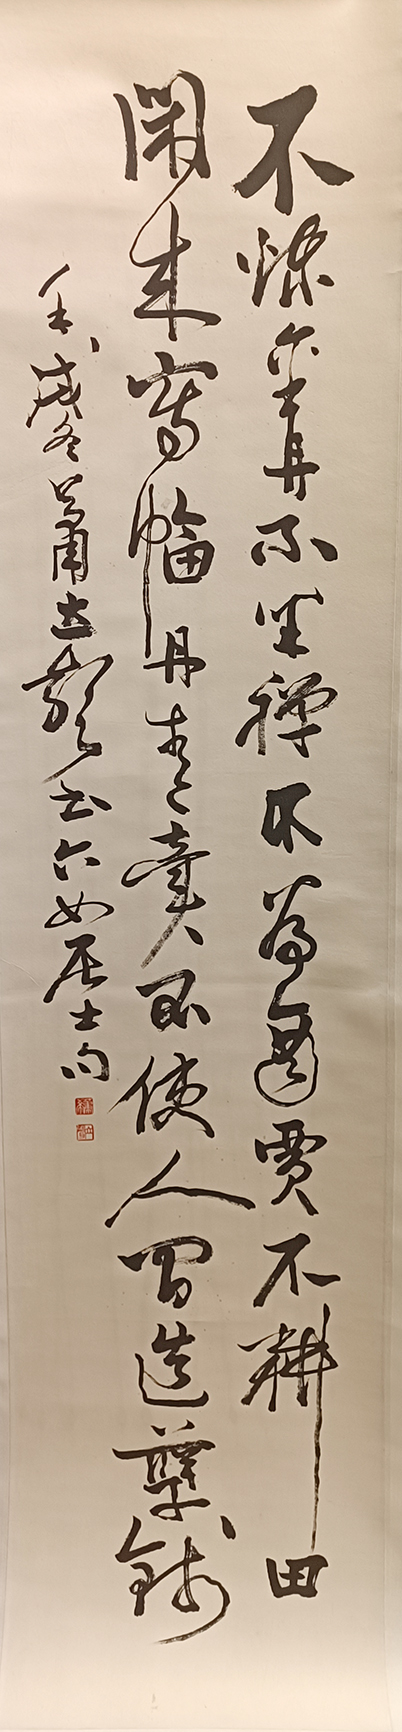 不煉金丹不坐禪不為商賈不耕田
閑來寫幅丹青賣不使人間造孽錢
壬戌冬蕭志龍書六如居士句